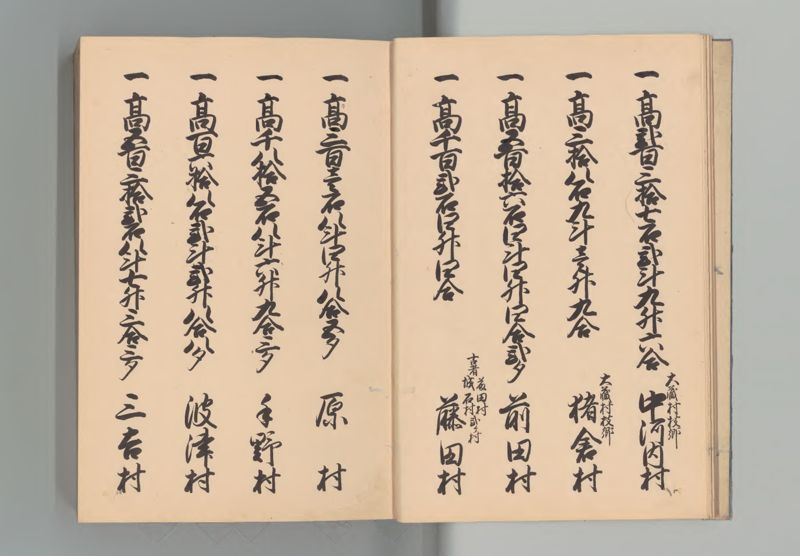 一高弐百三拾七石弐斗九升六合 大蔵村枝郷 中河内村
一高三拾八石九斗壱升九合 大蔵村枝郷 猪倉村
一高五百拾六石四斗四升四合弐夕 前田村
一高千百弐石四升四合 前田村 古者城石村弐ケ村 藤田村
一高三百壱石八斗四升八合五夕 原村
一高千八拾五石八斗六升九合三夕 手野村
一高百八拾八石弐斗弐升八合八夕 波津村
一高五百三拾弐石八斗七升三合三夕 三吉村